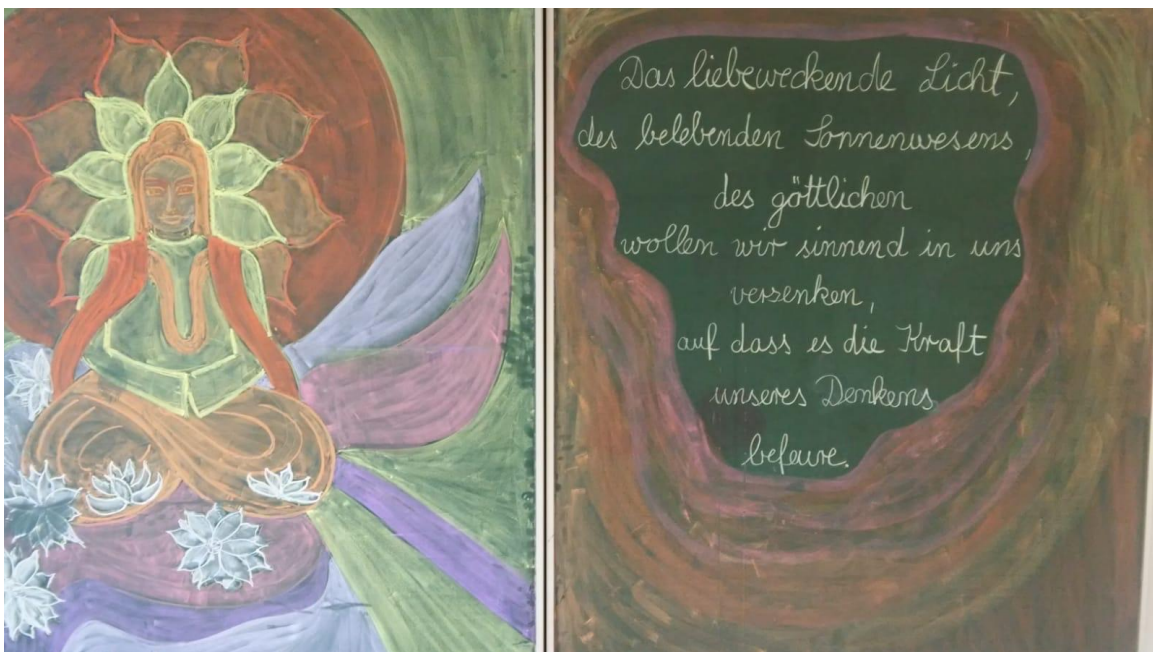 Das liebeweckende Licht,
des belebenden Sonnenwesens,
des göttlichen
wollen wir sinnend in uns
versenken,
auf dass es die Kraft
unseres Denkens
befeure.